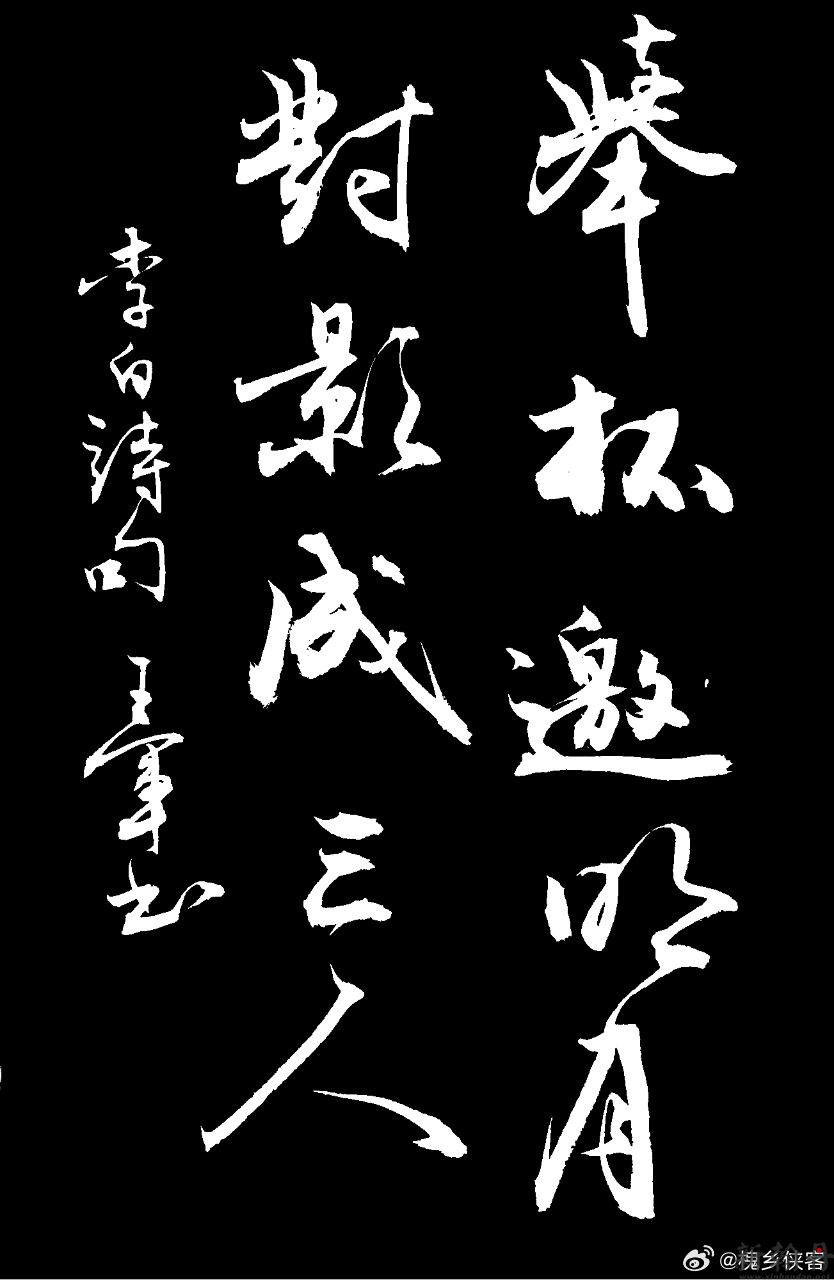 舉杯邀明月
對影成三人
李白詩句 王军书
@槐乡侠客